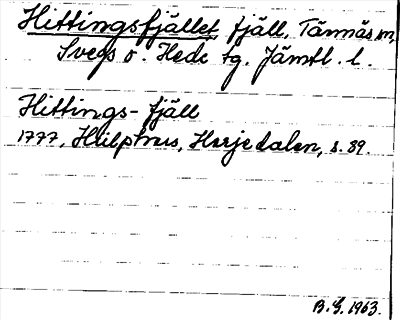 Hittingsfjället, fjäll, Tännäs sn,
Svegs o. Hede tg. Jämtl. l.
Hittings-fjäll
1777, Hülphers, Herjedalen, s. 89.
B.G. 1963.